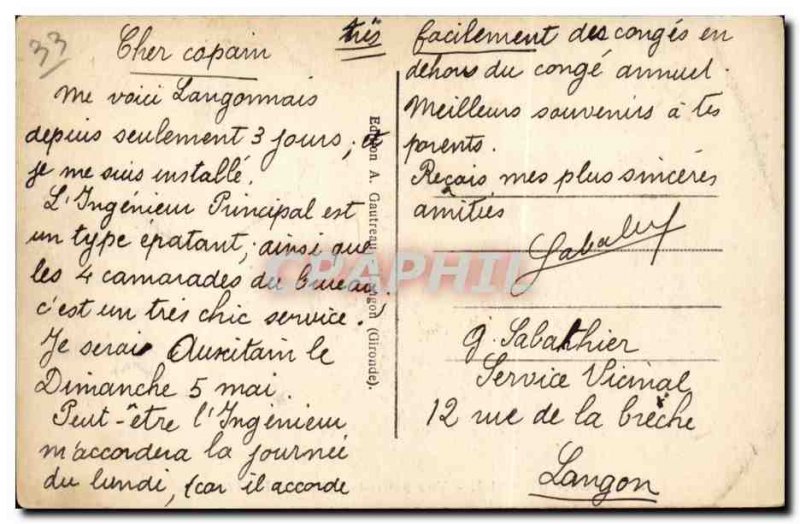 33
Cher copain
Me voici Langonnais
depuis seulement 3 jours, et
je me suis installé.
L'Ingénieur Principal est
un type épatant, ainsi que
les 4 camarades du bureau,
c'est un très chic service.
Je serai Auxitain le
Dimanche 5 mai.
Peut-être l'Ingénieur
m'accordera la journée
du lundi, (car il accorde
très facilement des congés en
dehors du congé annuel.
Meilleurs souvenirs à tes
parents.
Reçois mes plus sincères
amitiés
G. Sabathier
Service Vicinal
12 rue de la brèche
Langon
Edition A. Gautreau, Langon (Gironde).
CPAPHIL